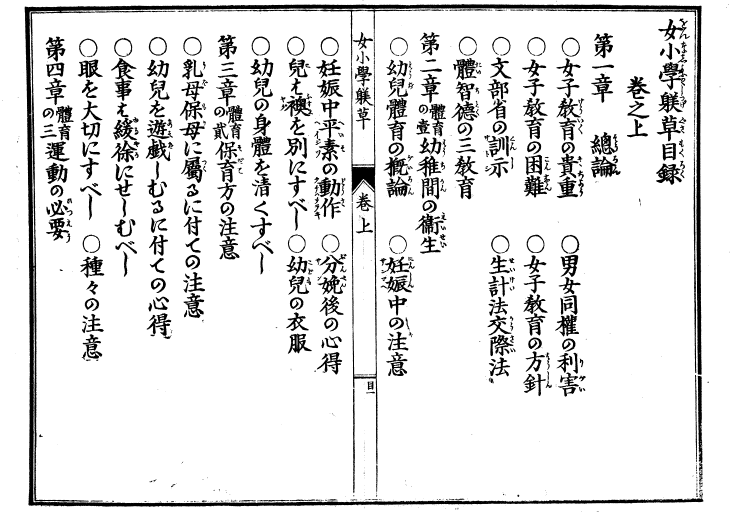 女小學躾草目録
卷之上
第一章 總論
○女子教育の貴重 ○男女同權の利害
○女子教育の困難 ○女子教育の方針
○文部省の訓示 ○生計法交際法
○體智德の三教育
第二章 體育の壹 幼稚間の衞生
○幼兒體育の概論 ○妊娠中の注意
女小學躾草 卷上 目一
○妊娠中平素の動作 ○分娩後の心得
○兒も襖を別にすべし ○幼兒の衣服
○幼兒の身體を清くすべし
第三章 體育の貳 保育方の注意
○乳母保母に屬るに付ての注意
○幼兒を遊戲しむるに付ての心得
○食事も緩徐にせしむべし
○眼を大切にすべし ○種々の注意
第四章 體育の三 運動の必要